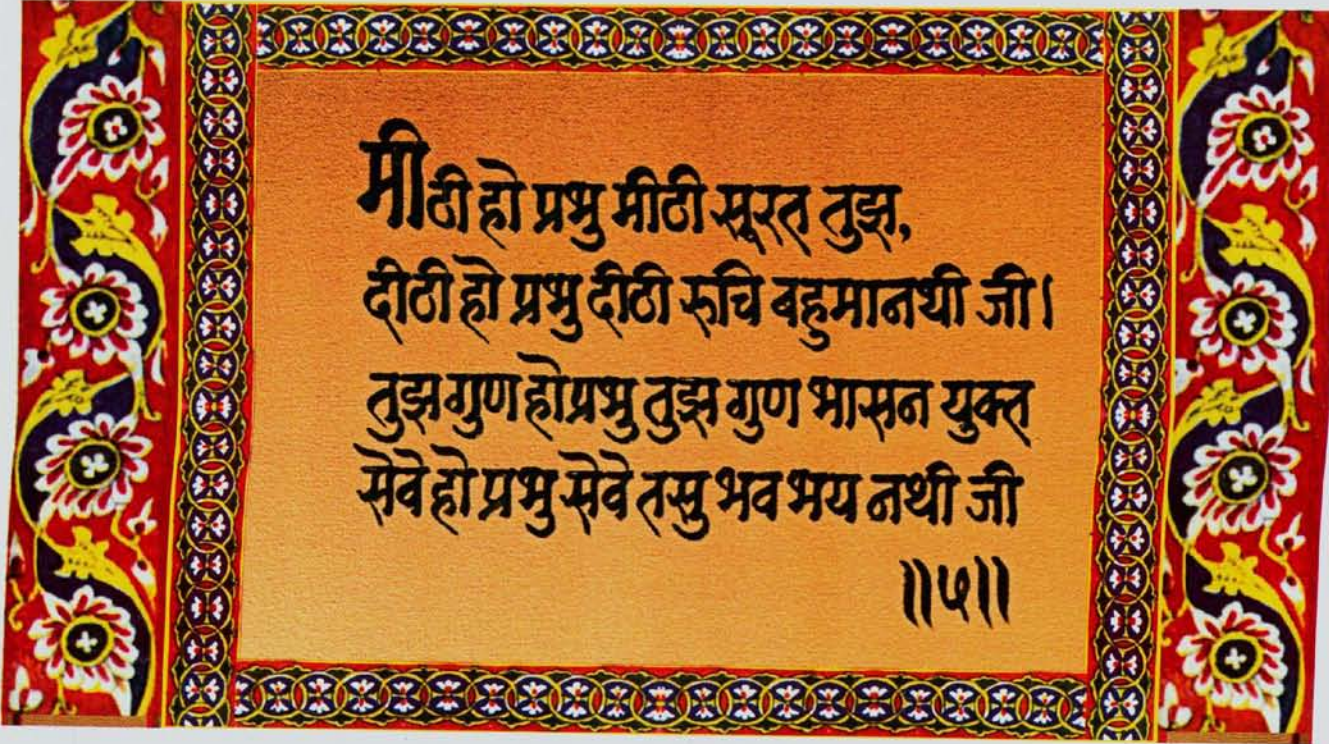 मीठी हो प्रभु मीठी सूरत तुझ,
दीठी हो प्रभु दीठी रुचि बहुमानथी जी।
तुझ गुण हो प्रभु तुझ गुण भासन युक्त
सेवे हो प्रभु सेवे तसु भव भय नथी जी
॥५॥